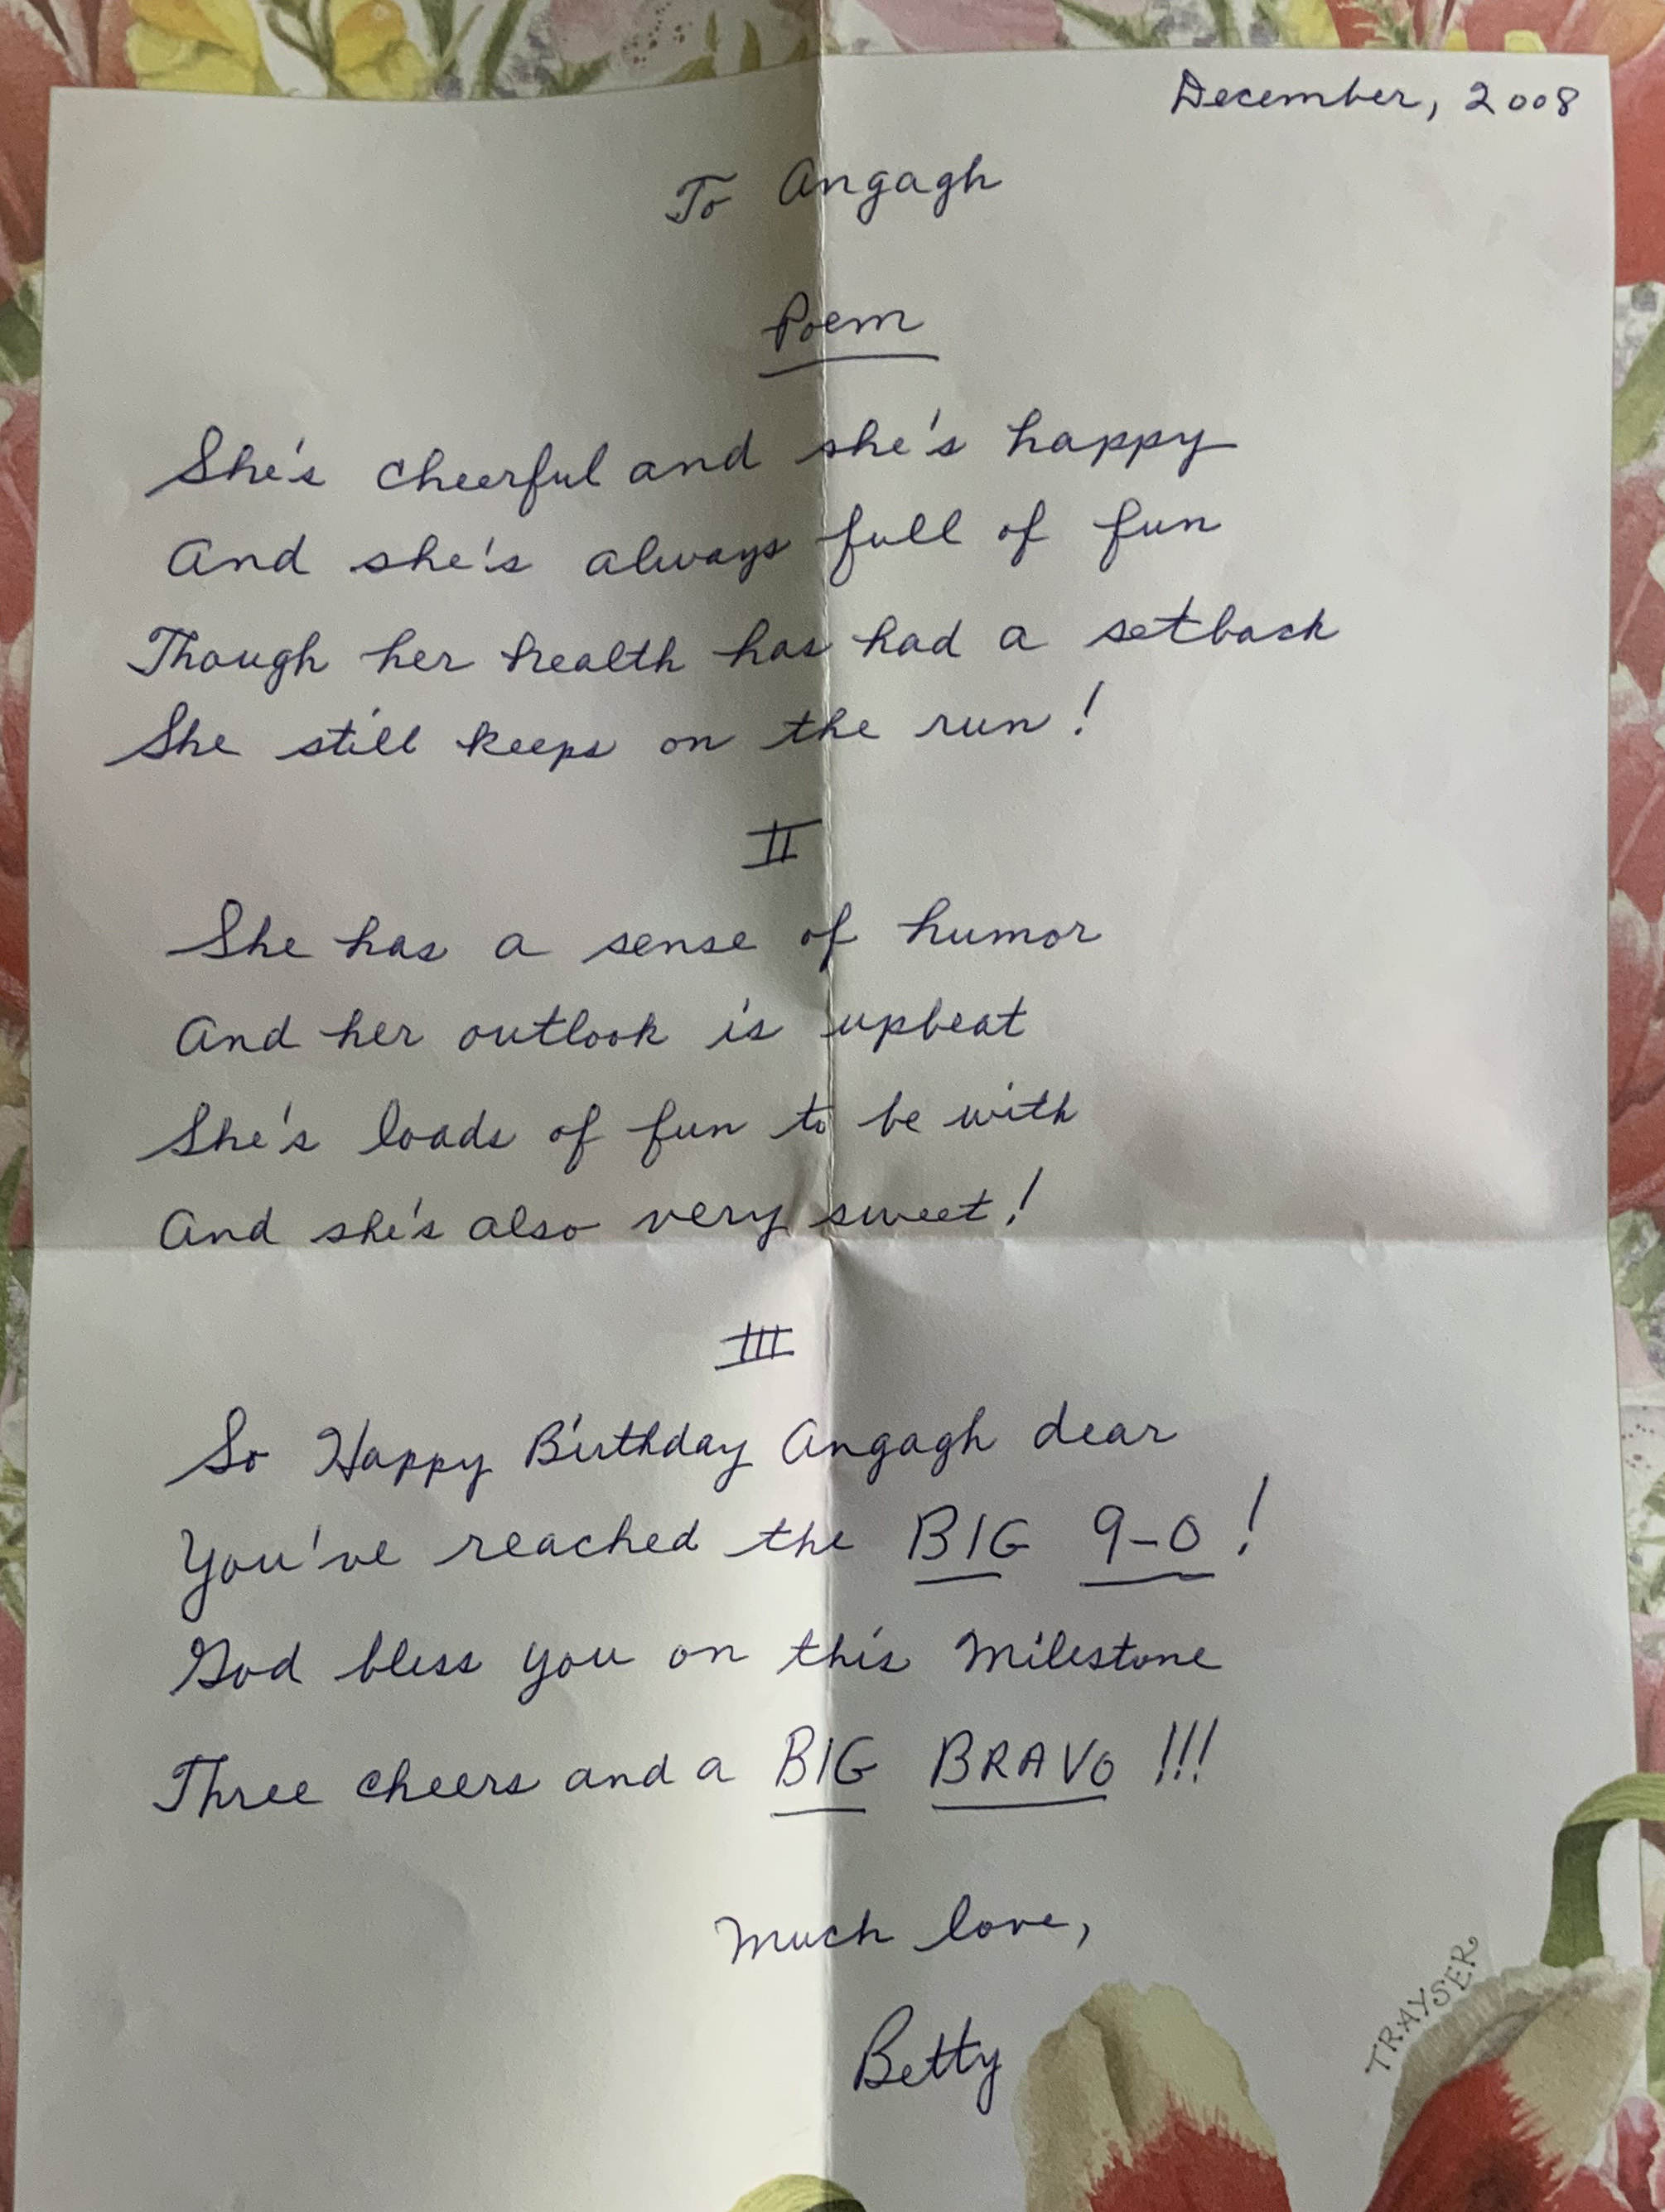 December, 2008
To Angagh
Poem
She's cheerful and she's happy
And she's always full of fun
Though her health has had a setback
She still keeps on the run!
II
She has a sense of humor
And her outlook is upbeat
She's loads of fun to be with
And she's also very sweet!
III
So Happy Birthday Angagh dear
You've reached the BIG 9-0!
God bless you on this Milestone
Three cheers and a BIG BRAVO!!!
Much love,
Betty
TRAYSER